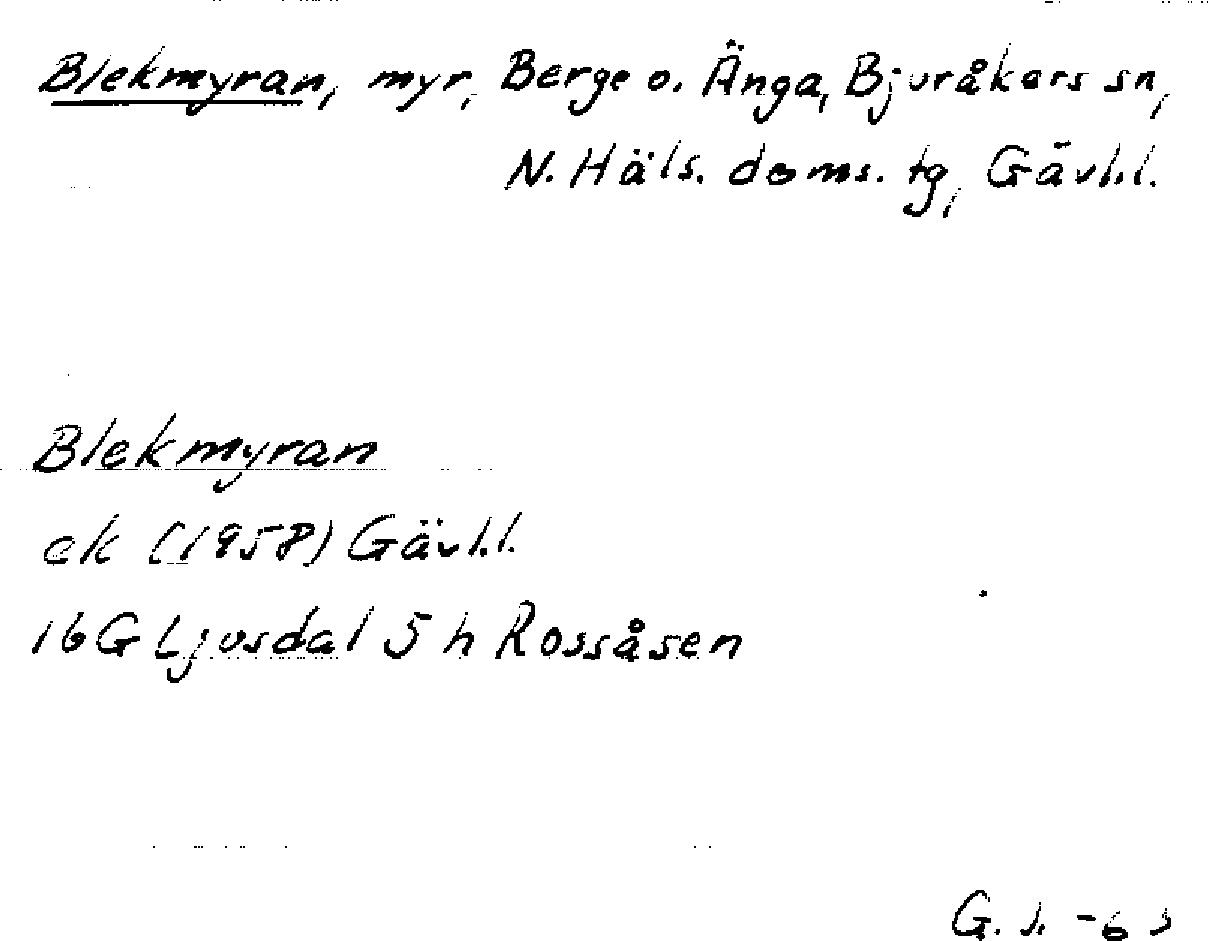 Blekmyran, myr, Berge o. Änga, Bjuråkers sn,
N. Häls. doms. tg, Gävl.l.
Blekmyran
ek (1958) Gävl.l.
16G Ljusdal 5 h Rossåsen
G.